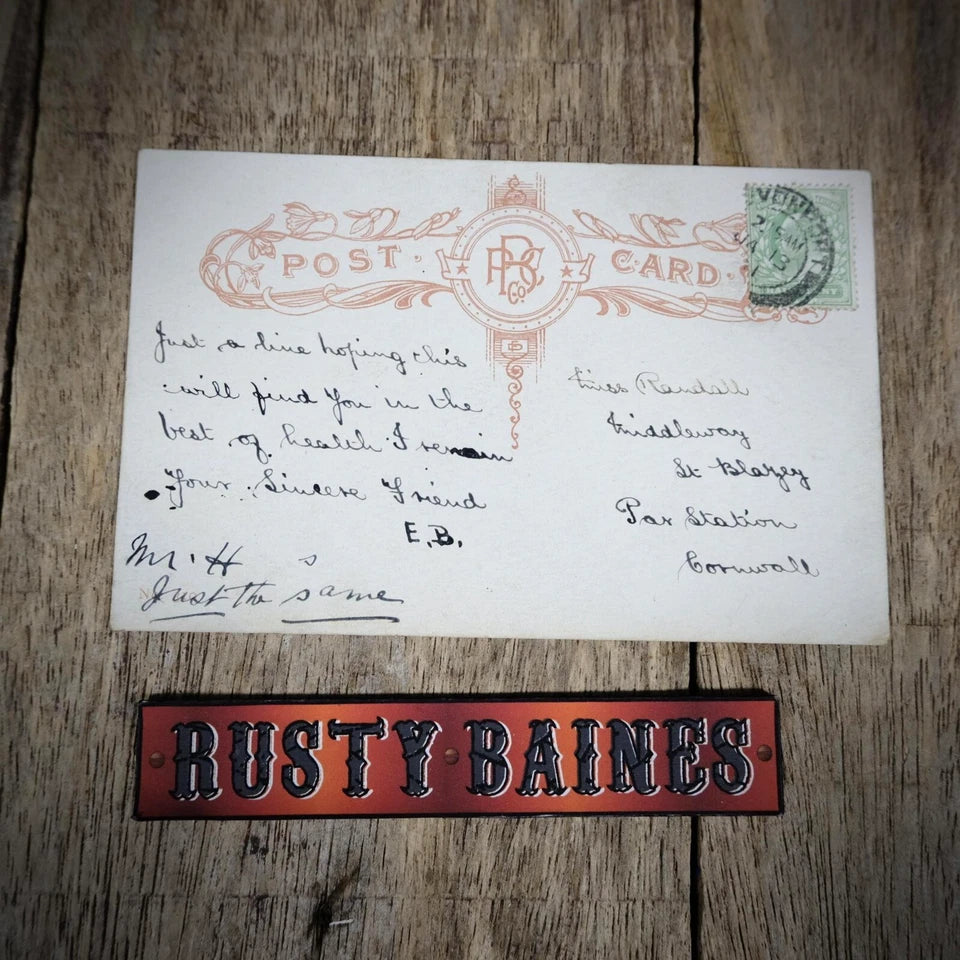 POST CARD
PBC Co
Just a line hoping this
will find you in the
best of health I remain
Your Sincere Friend
E.B.
Mr. H s
Just the same
Miss Randall
Middleway
St Blazey
Par Station
Cornwall
RUSTY BAINES